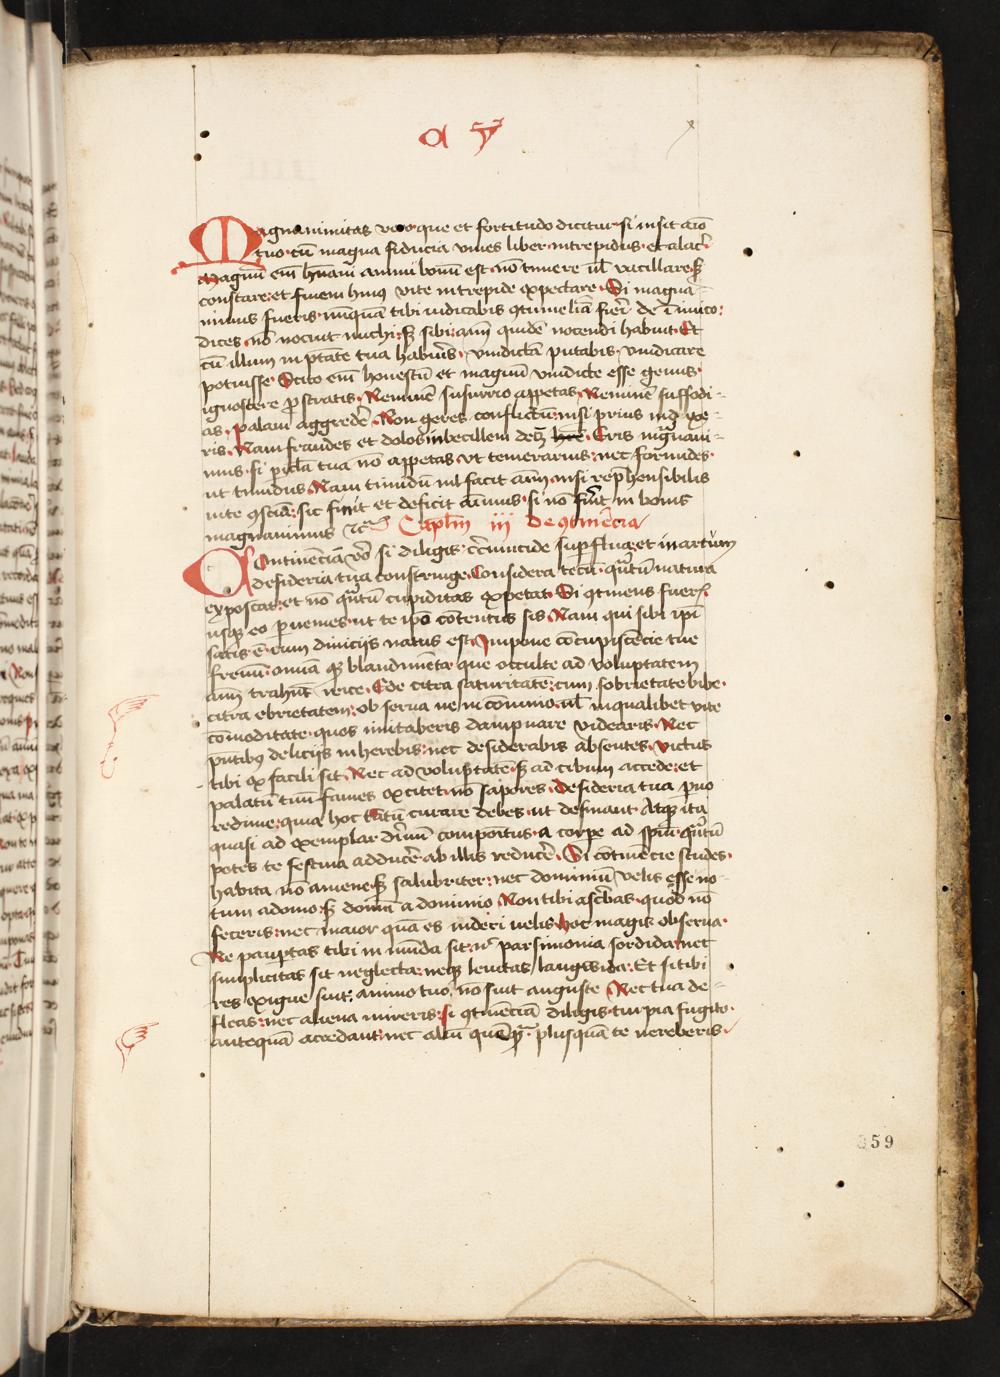 a v
Magnanimitas vero que et fortitudo dicitur si insit aīo
tuo cū magna fiducia viues liber intrepidus et alacē
Magnū em̄ hūani animi bonū est nō timere nl̄ vacillare sꝫ
constare et finem huiꝰ vite intrepide expectare Si magna-
nimus fueris nūquā tibi iudicabis ꝯtumeliā fieri de īimico
dices nō nocuit michi sꝫ sibi aīm quidē nocendi habuit Et
cū illum in ptāte tua habuēis vindictā putabis vindicare
potuisse Scito em̄ honestū et magnū vindicte esse genus
ignoscere prostratis Neminē susurrio appetas Neminē suffodi-
as palam aggredē Non geres conflictū nisi prius indixe-
ris Nam fraudes et dolos inbecillem decꝫ Eris mgnani-
mus si picl̄a tua nō appetas vt temerarius nec formides
ut timidus Nam timidū nl̄ facit aīm nisi reprehensibilis
uite ꝯscīa sic finit et deficit aīmus si nō fuīt in bonis
magnanimus ⁊cᷓ Caplm̄ iij de ꝯtinēcia
Continēciā vō si diligis cīcūcide supflua et in artum
desideria tua constringe Considera tecū qntū natura
exposcat et nō qntū cupiditas expetat Si ꝯtinens fueris
usqꝫ eo puenies ut te ipō cōtentus sis Nam qui sibi ipī
satis ē cum diuicijs natus est Impone cōcupiscēcie tue
frenū omīa qꝫ blandimēta que occulte ad voluptatem
aīm trahūt reice Ede citra saturitatē cum sobrietate bibe
citra ebrietatem obserua ne in conuiuio nl̄ in qualibet vite
cōmoditate quos imitaberis dampnare videaris Nec
pntibꝰ delicijs inherebis nec desiderabis absentes victus
tibi ex facili sit Nec ad voluptatē sꝫ ad cibum accede et
palatū tuū fames excitet nō sapores Desideria tua puo
redime quia hoc tātū curare debes ut desinant Atqꝫ ita
quasi ad exemplar diuinū compoītus a corpe ad spīm qntū
potes te festina adducē ab illis reducē Si cōtinēcie studes
habita nō amene sꝫ salubriter nec dominiū velis esse no-
tum a domo sꝫ domū a dominio Non tibi ascbas quod nō
feceris nec maior quā es uideri uelis hoc magis obserua
Ne paupertas tibi in mūda sit nc̄ parsimonia sordida nec
simplicitas sit neglecta neqꝫ lenitas langwida Et si tibi
res exigue sint animo tuo nō sint anguste Nec tua de-
fleas nec aliena mireris Si ꝯtinēciā diligis turpia fugito
antequā accedant nec aliū quēqꝫ plusquā te uereberis
359